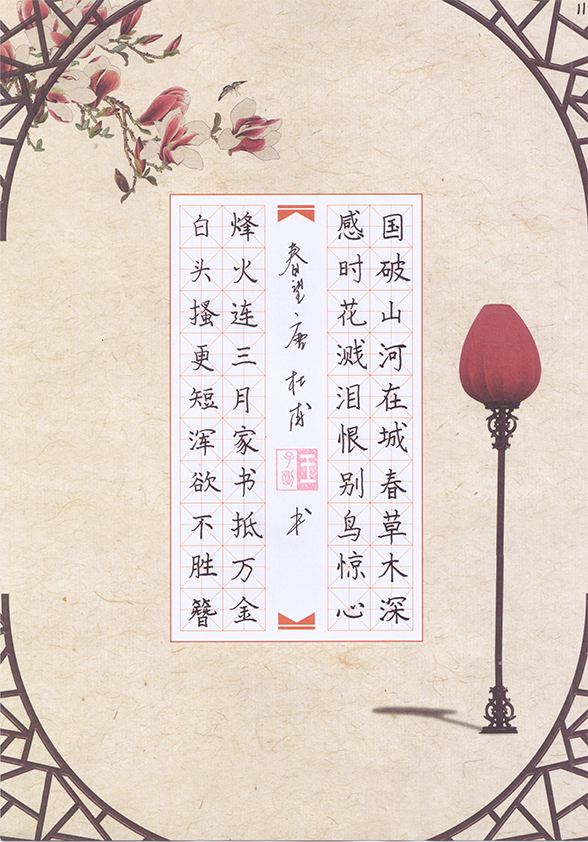 国破山河在城春草木深
感时花溅泪恨别鸟惊心
春望、唐 杜甫
书
烽火连三月家书抵万金
白头搔更短浑欲不胜簪
11